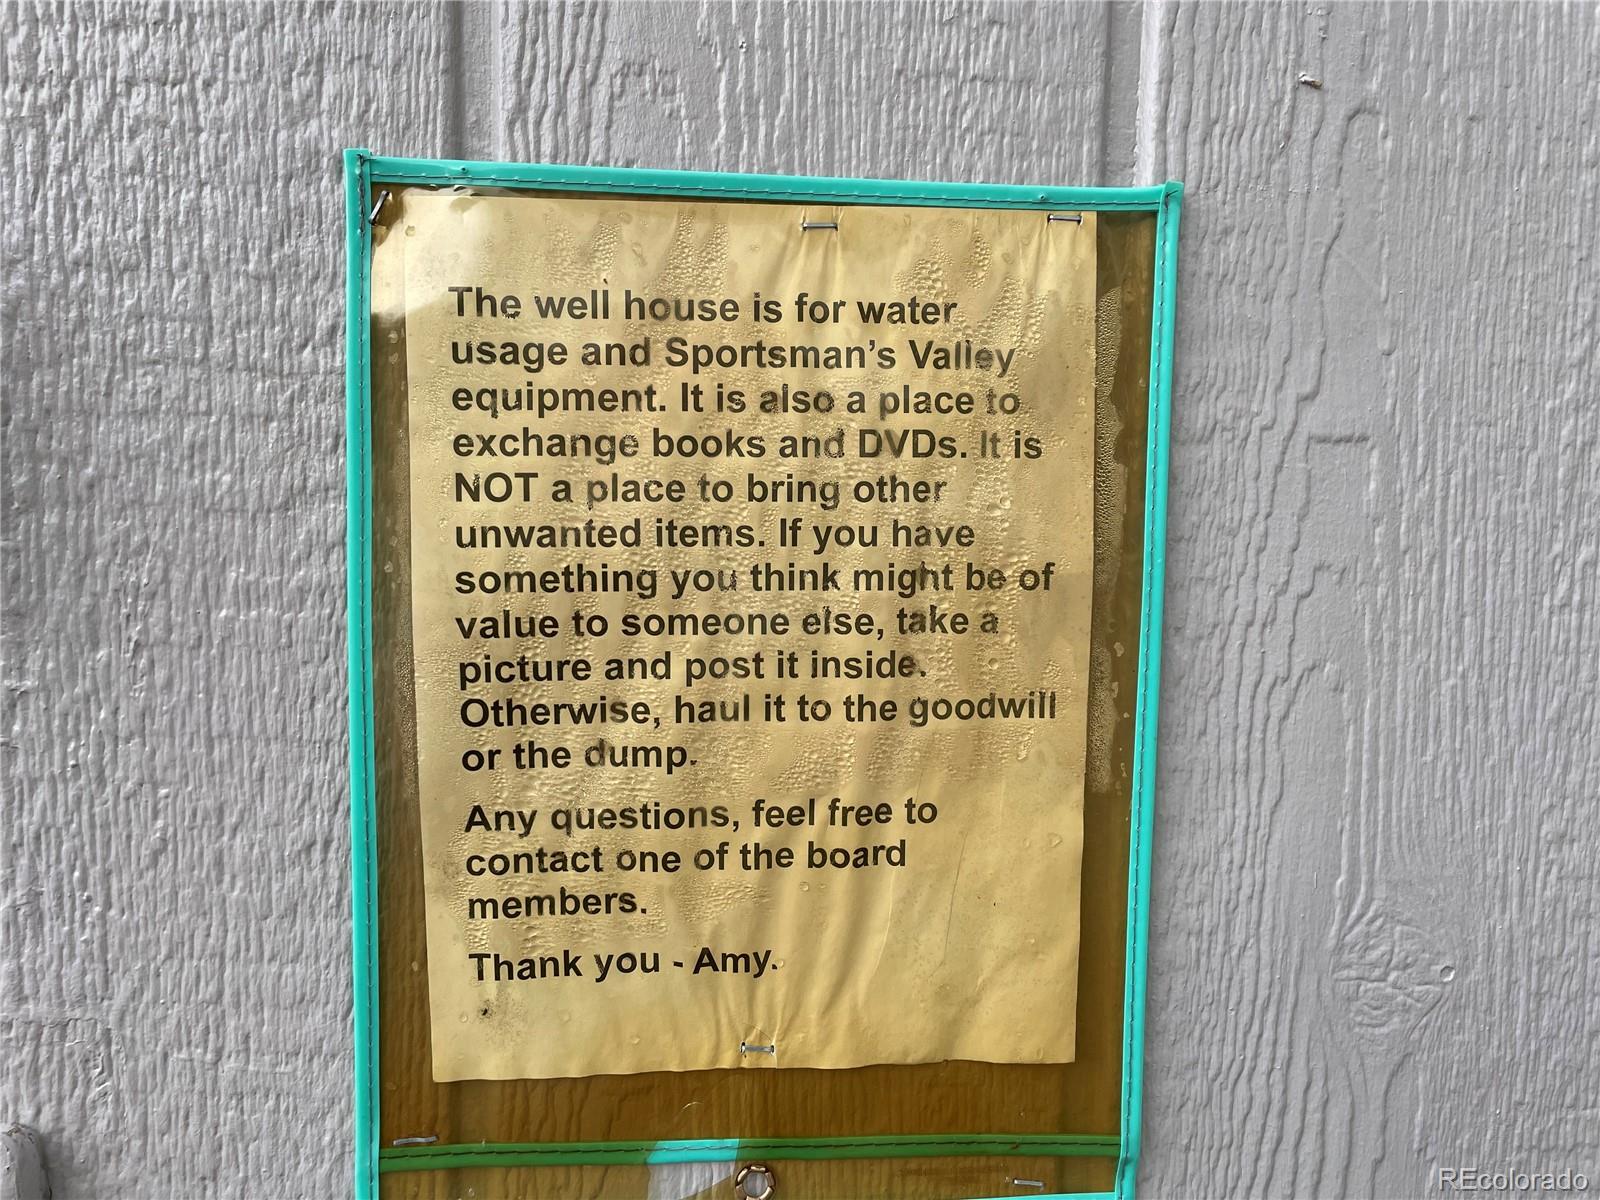 The well house is for water
usage and Sportsman's Valley
equipment. It is also a place to
exchange books and DVDs. It is
NOT a place to bring other
unwanted items. If you have
something you think might be of
value to someone else, take a
picture and post it inside.
Otherwise, haul it to the goodwill
or the dump.
Any questions, feel free to
contact one of the board
members.
Thank you - Amy.
REcolorado